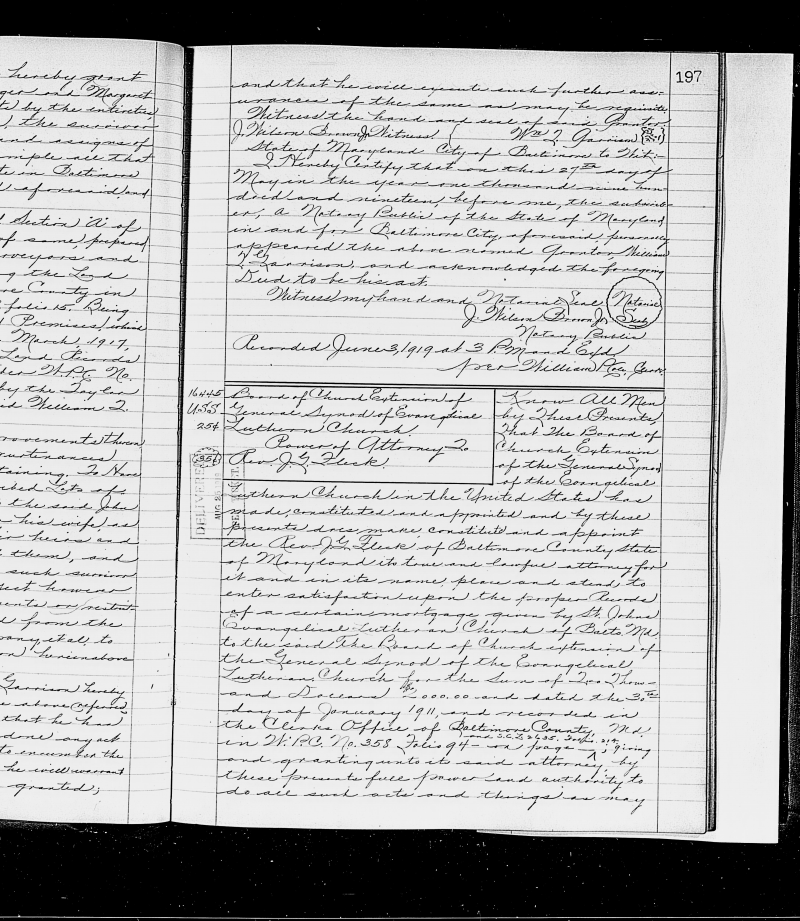 hereby grant
ger and Margaret
by the entireties
the survivor
and assigns of
mple all that
te in Baltimore
aforesaid, and
Section "A" of
of same, prepared
rveyors and
g the Land
re County in
folio 15. Being
Premises, which
March, 1917,
Land Records
ber W.P.C. No.
by the Taylor
id William T.
provements thereon
purtenances
taining. To Have
ribed Lots of
the said John
his wife, as
ir heirs and
them, and
such survivor
ject however
ments or restrict
d from the
pany et al. to
on hereinabove
Garrison hereby
e above referred
that he has
done any act
to encumber the
he will warrant
granted;
197
and that he will execute such further ass-
urances of the same as may be requisite
Witness the hand and seal of said Grantor
J. Wilson Brown Jr. Witness) Wm T. Garrison
State of Maryland City of Baltimore to Wit:-
I Hereby Certify that on this 27th day of
May in the year one thousand nine hun-
dred and nineteen, before me, the subscrib-
er, a Notary Public of the State of Maryland
in and for Baltimore City, aforesaid, personally
appeared the above named Grantor, William
T. Garrison, and acknowledged the foregoing
Deed to be his act.
Witness my hand and Notarial Seal
Notarial Seal
J. Wilson Brown Jr.
Notary Public
Recorded June 3, 1919 at 3 P.M. and Exd
per William P. Cole, Clerk.
16445
U.S.I.R.S
25¢
Board of Church Extension of
General Synod of Evangelical
Lutheran Church
Power of Attorney To
Rev. J. G. Fleck.
DELIVERED
Know All Men
by These Presents,
That The Board of
Church Extension
of the General Synod
of the Evangelical
Lutheran Church in the United States has
made, constituted and appointed and by these
presents does make, constitute and appoint
the Rev. J. G. Fleck of Baltimore County State
of Maryland its true and lawful attorney for
it and in its name, place and stead, to
enter satisfaction upon the proper Records
of a certain mortgage given by St. Johns
Evangelical Lutheran Church of Balto. Md.
to the said The Board of Church extension of
the General Synod of the Evangelical
Lutheran Church for the Sum of Two Thous-
and Dollars 2000.00 and dated the 30th
day of January 1911, and recorded in
the Clerks Office of Baltimore County, Md.
in W.P.C. No. 358 Folio 94 - on page - ; giving
and granting unto its said attorney, by
these presents full power and authority to
do all such acts and things as may